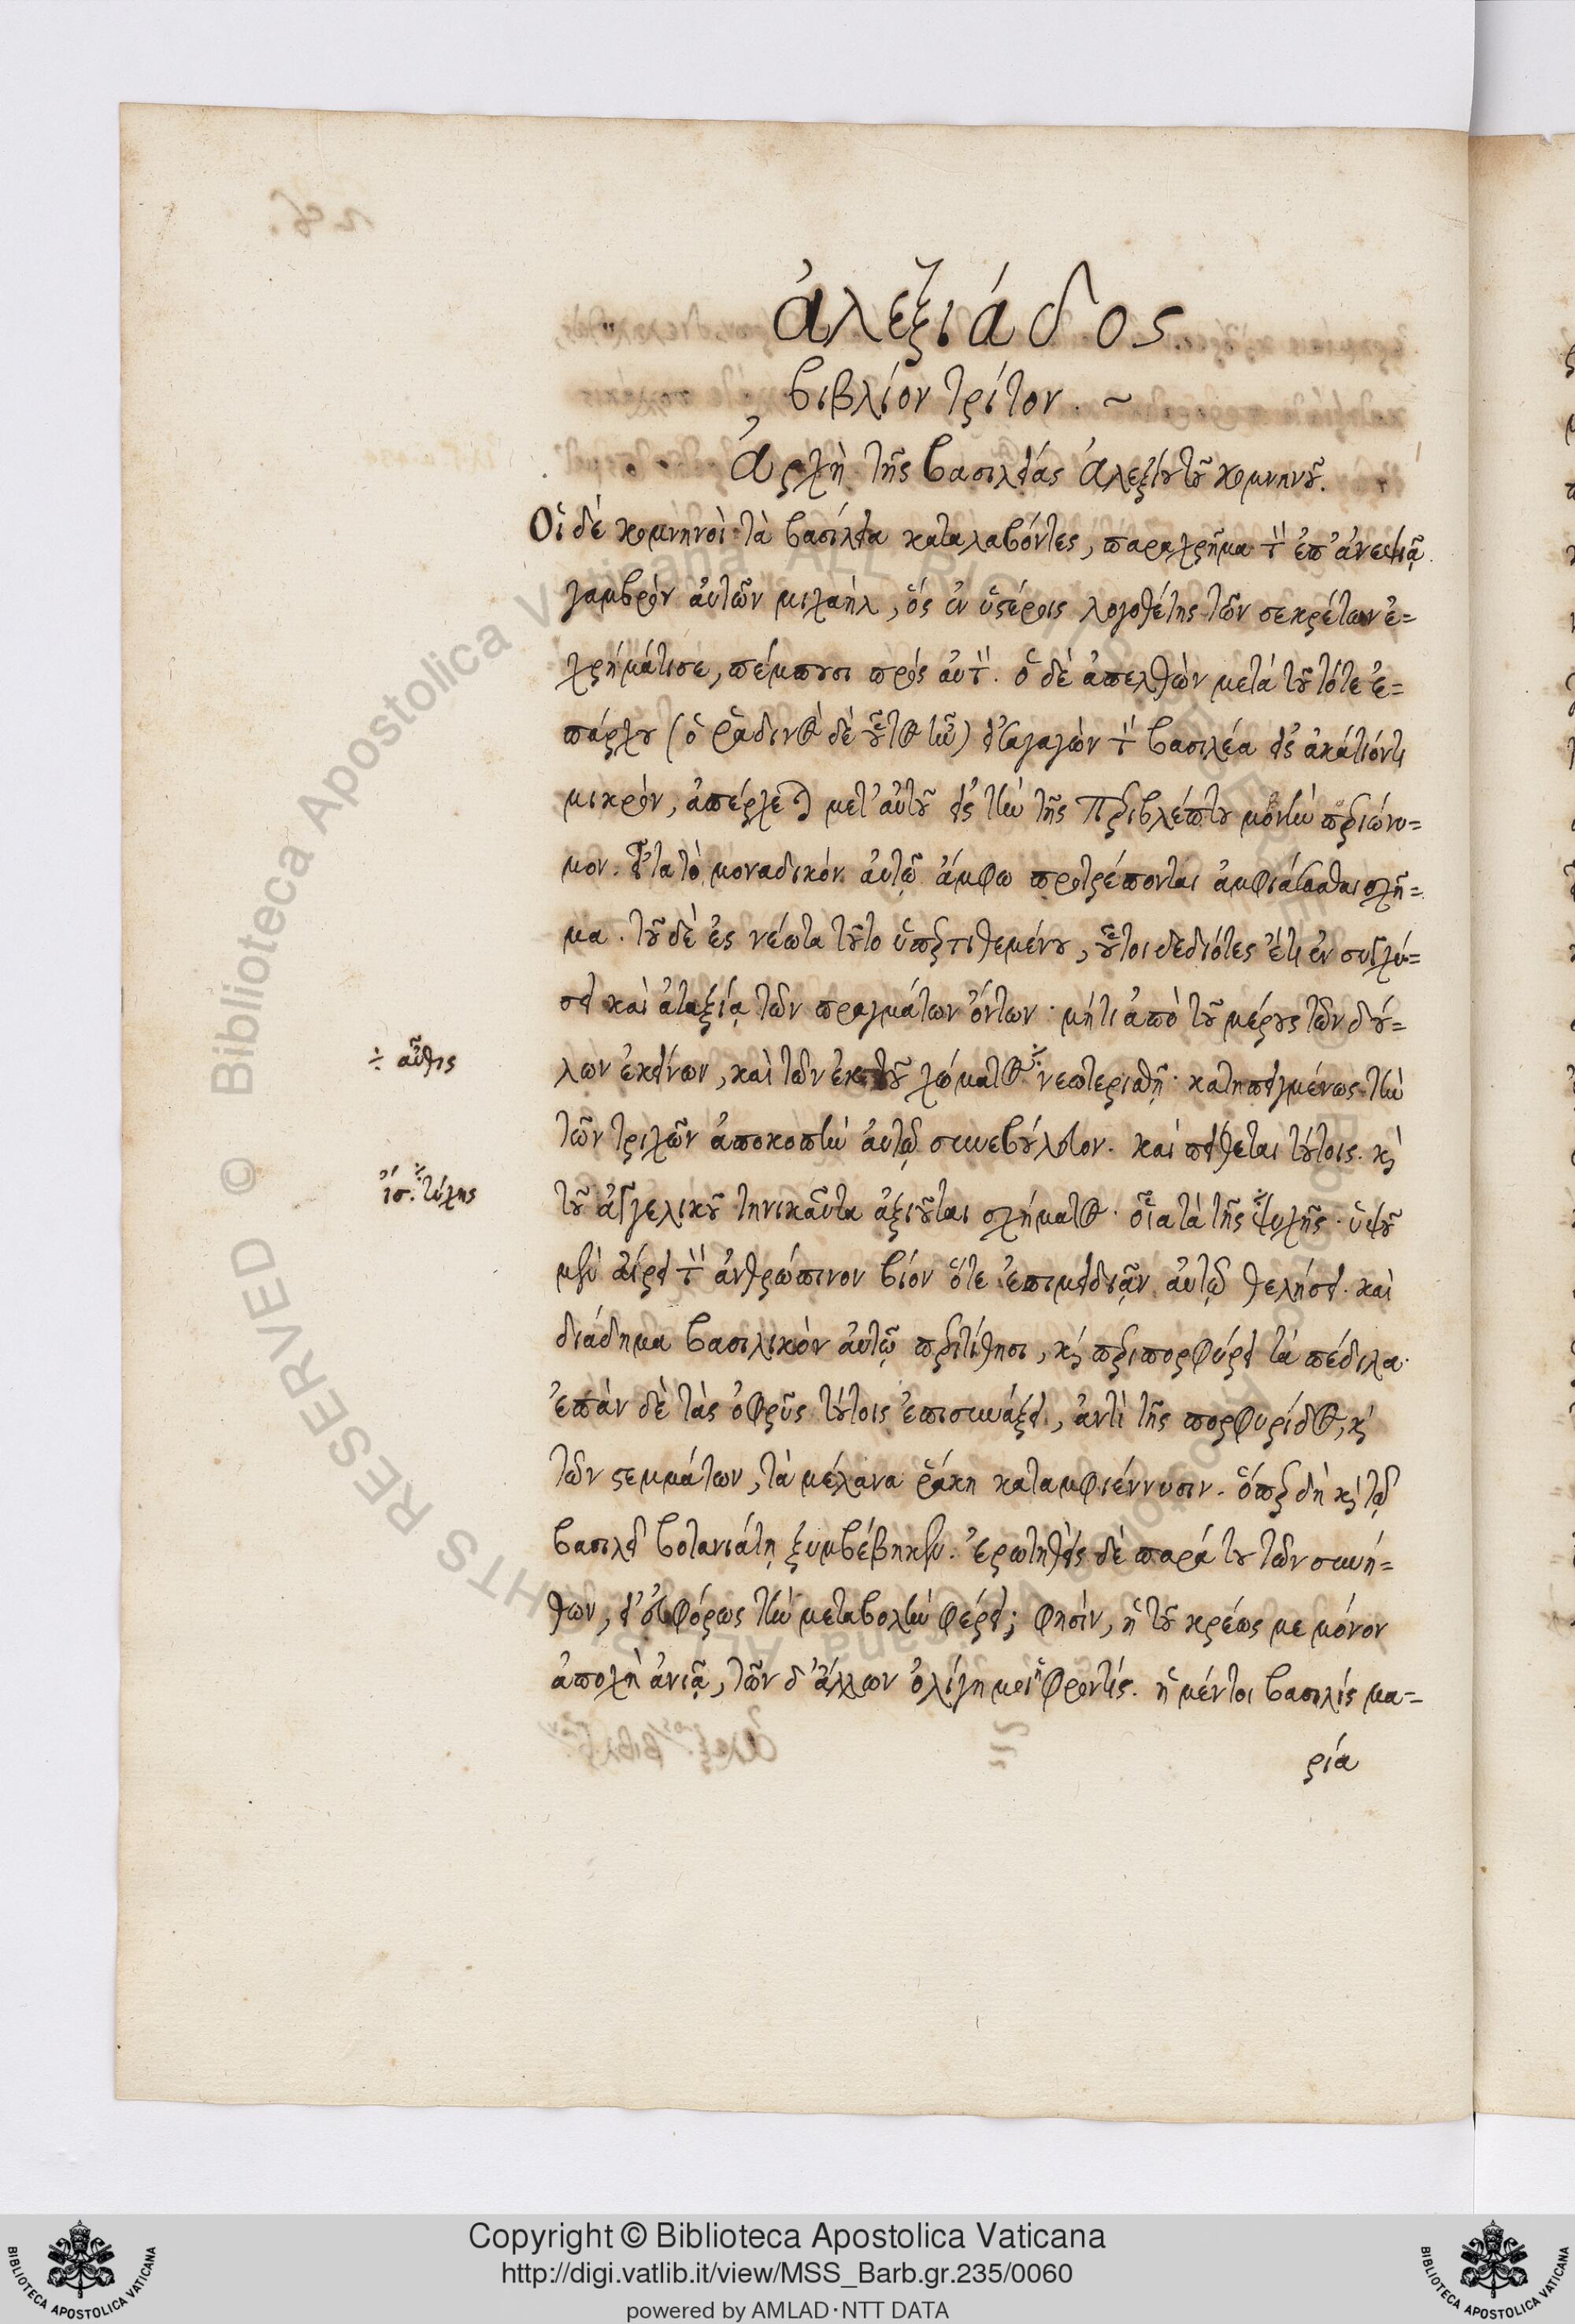 ἀλεξιάδος
βιβλίον τρίτον. ~
Ἀρχὴ τῆς βασιλείας Ἀλεξίου τοῦ κομνηνοῦ.
Οἱ δὲ κομνηνοὶ τὰ βασίλεια καταλαβόντες, παραχρῆμα τὸν ἐπ' ἀνεψιᾷ
γαμβρὸν αὐτῶν μιχαὴλ, ὃς ἐν ὑστέροις λογοθέτης τῶν σεκρέτων ἐ=
χρημάτισε, πέμπουσι πρὸς αὐτόν. ὁ δὲ ἀπελθὼν μετὰ τοῦ τότε ἐ=
πάρχου (ὁ ῥαδινὸς δὲ οὗτος ἦν) εἰσαγαγὼν τὸν βασιλέα εἰς ἀκάτιόν τι
μικρὸν, ἀπέρχεται μετ' αὐτοῦ εἰς τὴν τῆς Περιβλέπτου μονὴν περιώνυ=
μον. εἶτα τὸ μοναδικὸν αὐτῷ ἄμφω προτρέπονται ἀμφιάσασθαι σχῆ=
μα. τοῦ δὲ ἐς νέωτα τοῦτο ὑπερτιθεμένου, οὗτοι δεδιότες ἔτι ἐν συγχύ=
σει καὶ ἀταξίᾳ τῶν πραγμάτων ὄντων· μή τι ἀπὸ τοῦ μέρους τῶν δού=
λων ἐκείνων, καὶ τῶν ἐκ τοῦ χώματος ÷ νεωτερισθῇ· κατηπειγμένως τὴν
÷ αὖθις
τῶν τριχῶν ἀποκοπὴν αὐτῷ συνεβούλευον. καὶ πείθεται τούτοις. καὶ
τοῦ ἀγγελικοῦ τηνικαῦτα ἀξιοῦται σχήματος. οἷα τὰ τῆς ÷ ψυχῆς. ὑψοῦ
ἴσ. ÷ τύχης
μὲν αἴρει τὸν ἀνθρώπινον βίον ὅτε ἐπιμειδιᾷν αὐτῷ θελήσει. καὶ
διάδημα βασιλικὸν αὐτῷ περιτίθησι, καὶ περιπορφύρει τὰ πέδιλα·
ἐπὰν δὲ τὰς ὀφρῦς τούτοις ἐπισυνάξει, ἀντὶ τῆς πορφυρίδος, καὶ
τῶν στεμμάτων, τὰ μέλανα ῥάκη καταμφιέννυσιν. ὅπερ δὴ καὶ τῷ
βασιλεῖ βοτανιάτῃ ξυμβέβηκεν. ἐρωτηθεὶς δὲ παρά του τῶν συνή=
θων, εἰ εὐφόρως τὴν μεταβολὴν φέρει; φησὶν, ἡ τοῦ κρέως με μόνον
ἀποχὴ ἀνιᾷ, τῶν δ' ἄλλων ὀλίγη μοι ἡ φροντίς. ἡ μέντοι βασιλὶς μα=
ρία
Copyright © Biblioteca Apostolica Vaticana
http://digi.vatlib.it/view/MSS_Barb.gr.235/0060
powered by AMLAD·NTT DATA